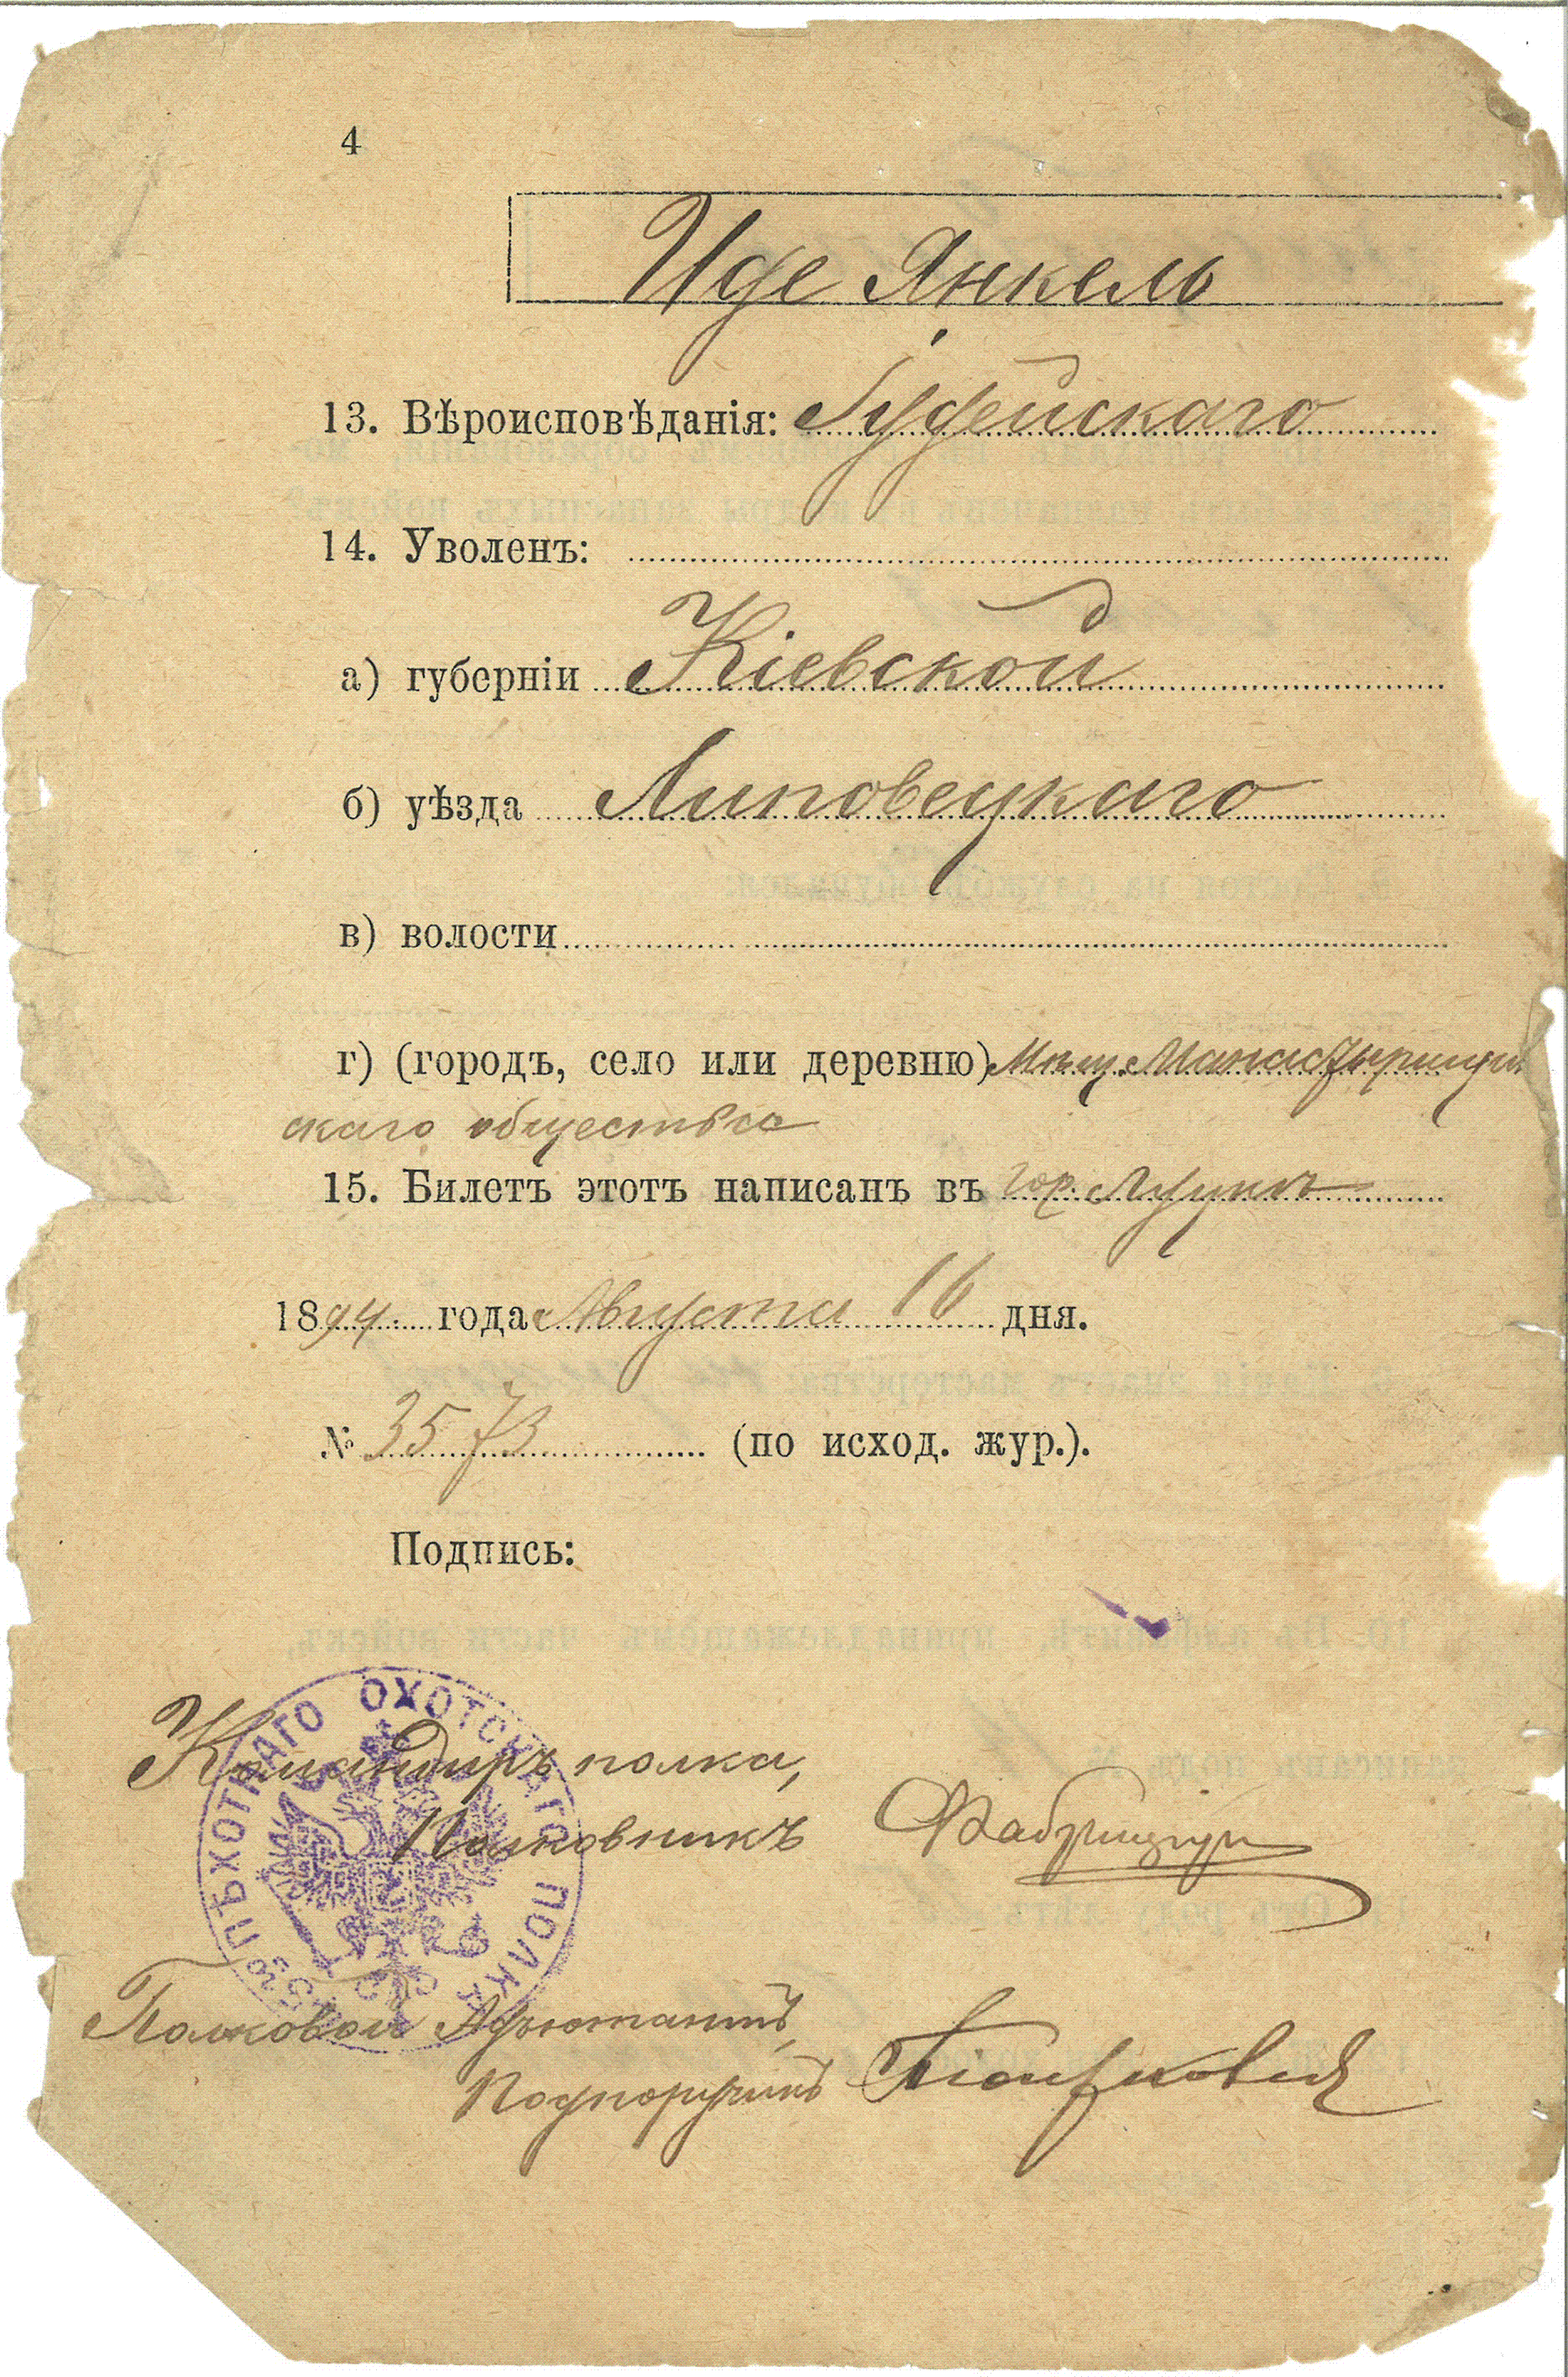 4
Иде Янкель
13. Вѣроисповѣданія: Іудейскаго
14. Уволенъ:
а) губерніи Кіевской
б) уѣзда Липовецкаго
в) волости
г) (городъ, село или деревню)
скаго общества
15. Билетъ этотъ написанъ въ гор. Луцкѣ
1894 года Августа 16 дня.
№ 3573 (по исход. жур.).
Подпись:
ПѢХОТНАГО ОХОТСКАГО ПОЛКА
Командиръ полка,
Полковникъ Фабрицiусъ
Полковой Адъютантъ,
Подпоручикъ